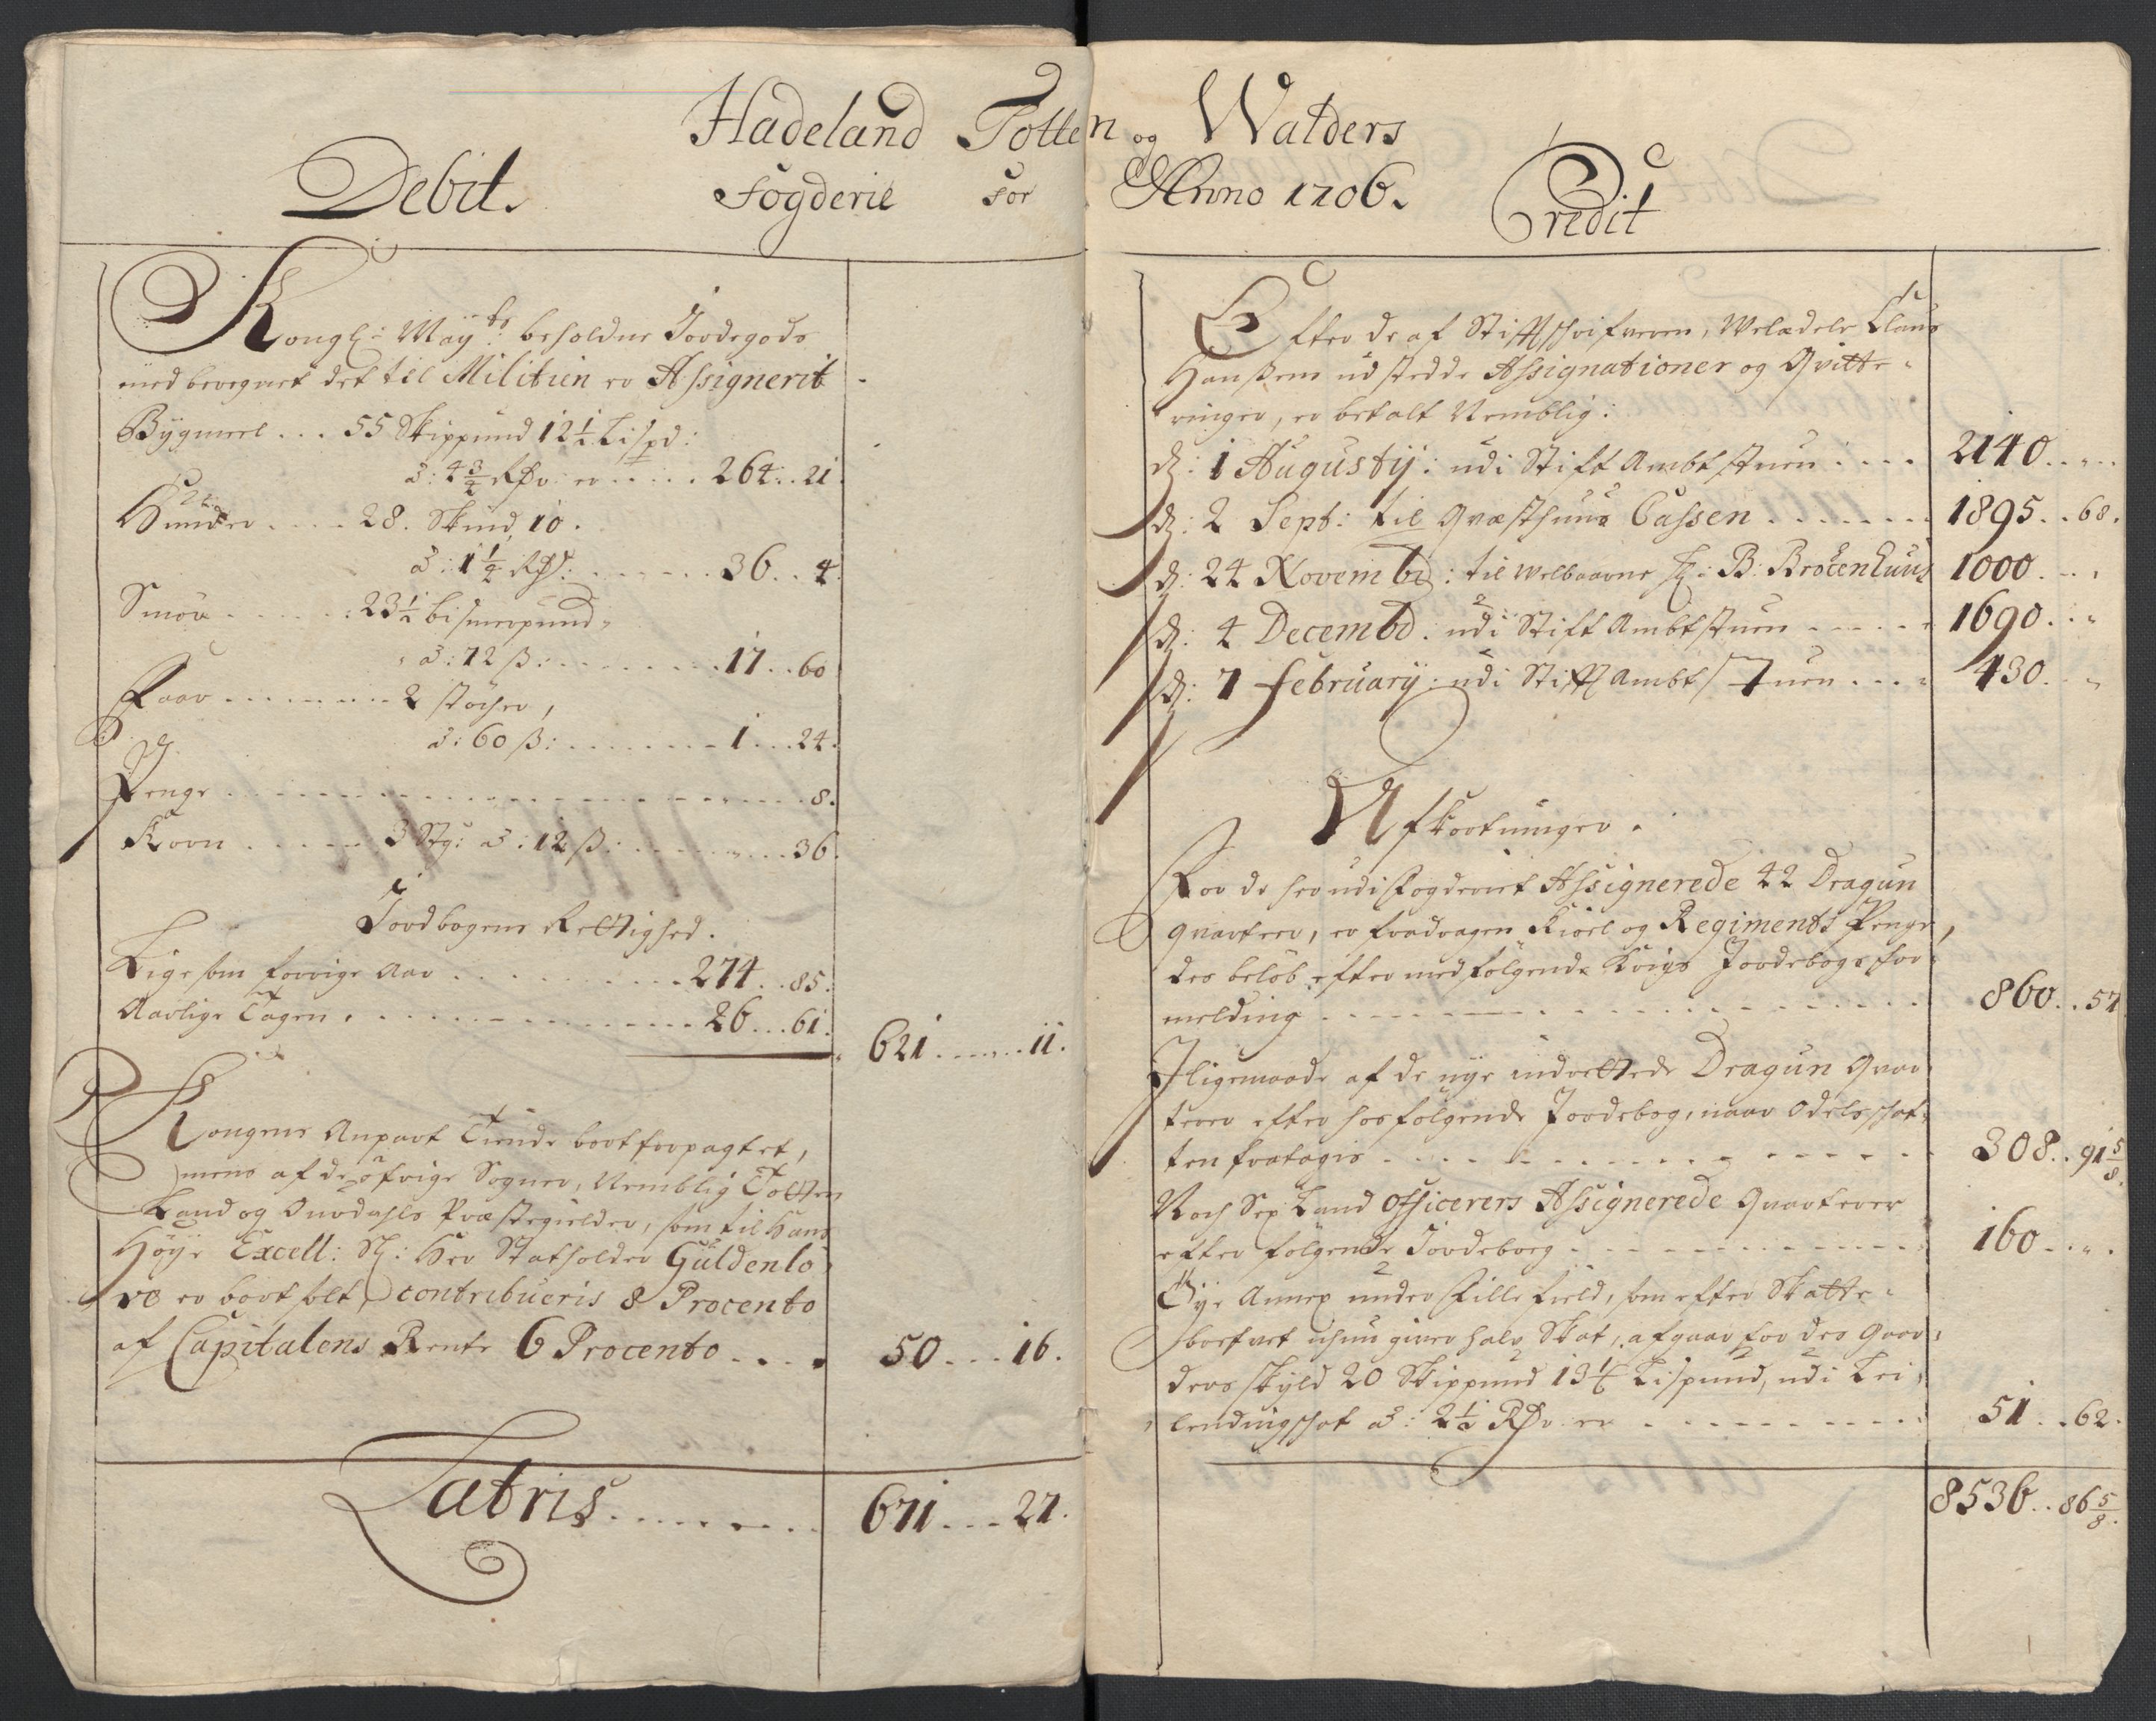 Hadeland Totten og Walders
Debit. Fogderie for Anno 1706. Credit
Kongl: Mayts: beholdne Jordegods
med beregnet det til Militien er Assignerit
Bygmeel ... 55 Skippund 12½ Lispd:
a: 4¾ Rdr er ..... 264..21.
Huuder .... 28. Skind, 10.
a: 1¼ Rdr: ...... 36..4.
Smör ...... 23½ bismerpund,
a: 72 ß: ........ 17..60
Faar ....... 2 støcher,
a: 60 ß: ....... 1...24.
Penge ................ 8.
Korn ..... 3 Stg: a: 12 ß: ....... 36.
Jordbogens Rettighed.
Lige som forrige Aar ........ 274..85.
Aarlige Tagen. ........... 26...61.
621.......11.
Kongens Anpart Tiende bortforpagtet,
mens af de øfrige Sogner, Nemblig Totten
Land og Ourdahls Præstegielder, som til Hans
Höye Excell: Sl: Her Statholder Güldenlö-
ve er bortsolt, contribueris 8 Procento
af Capitalens Rente 6 Procento .... 50...16.
Latris........ 671...27.
Efter de af Stiftschrifveren, Welædele Claus
Hanßen udstedde Assignationer og Qvitte-
ringer, er betalt Nemblig:
d: 1 Augustij: udi Stift Ambtstuen .... 2140..„..
d: 2 Sept: til Qvæsthuus Cassen ....... 1895..68.
d: 24 Novembr: til Welbaarne H: B: Brocenhuus 1000...
d: 4 Decembr: udi Stift Ambtstuen ..... 1690..„
d: 7 February: udi Stift Ambtstuen .... 430..„
Afkortninger.
For de her udi Fogderiet Assignerede 42 Dragun
qvarteer, er fradragen Kiöel og Regiments Penge,
des beløb efter medfølgende Krigs Jordebogs for-
melding ................ 860..57
Iligemaade af de nye indrettede Dragun Qvar-
terer efter hosfølgende Jordebog, naar Odelsschat-
ten fratagis ............. 308..91⅝.
Noch Sex Land Officerers Assignerede Qvarterer
efter følgende Jordeboeg ............ 160..„.
Öye Annex under Fille Field, som efter Skatte-
brefvet ichun giver halv Skat, afgaar for des Gaar-
ders skyld 20 Skippund 13¼ Lispund, udi Lei-
lendingschat a: 2½ Rdr er ......... 51..62.
8536..86⅝.